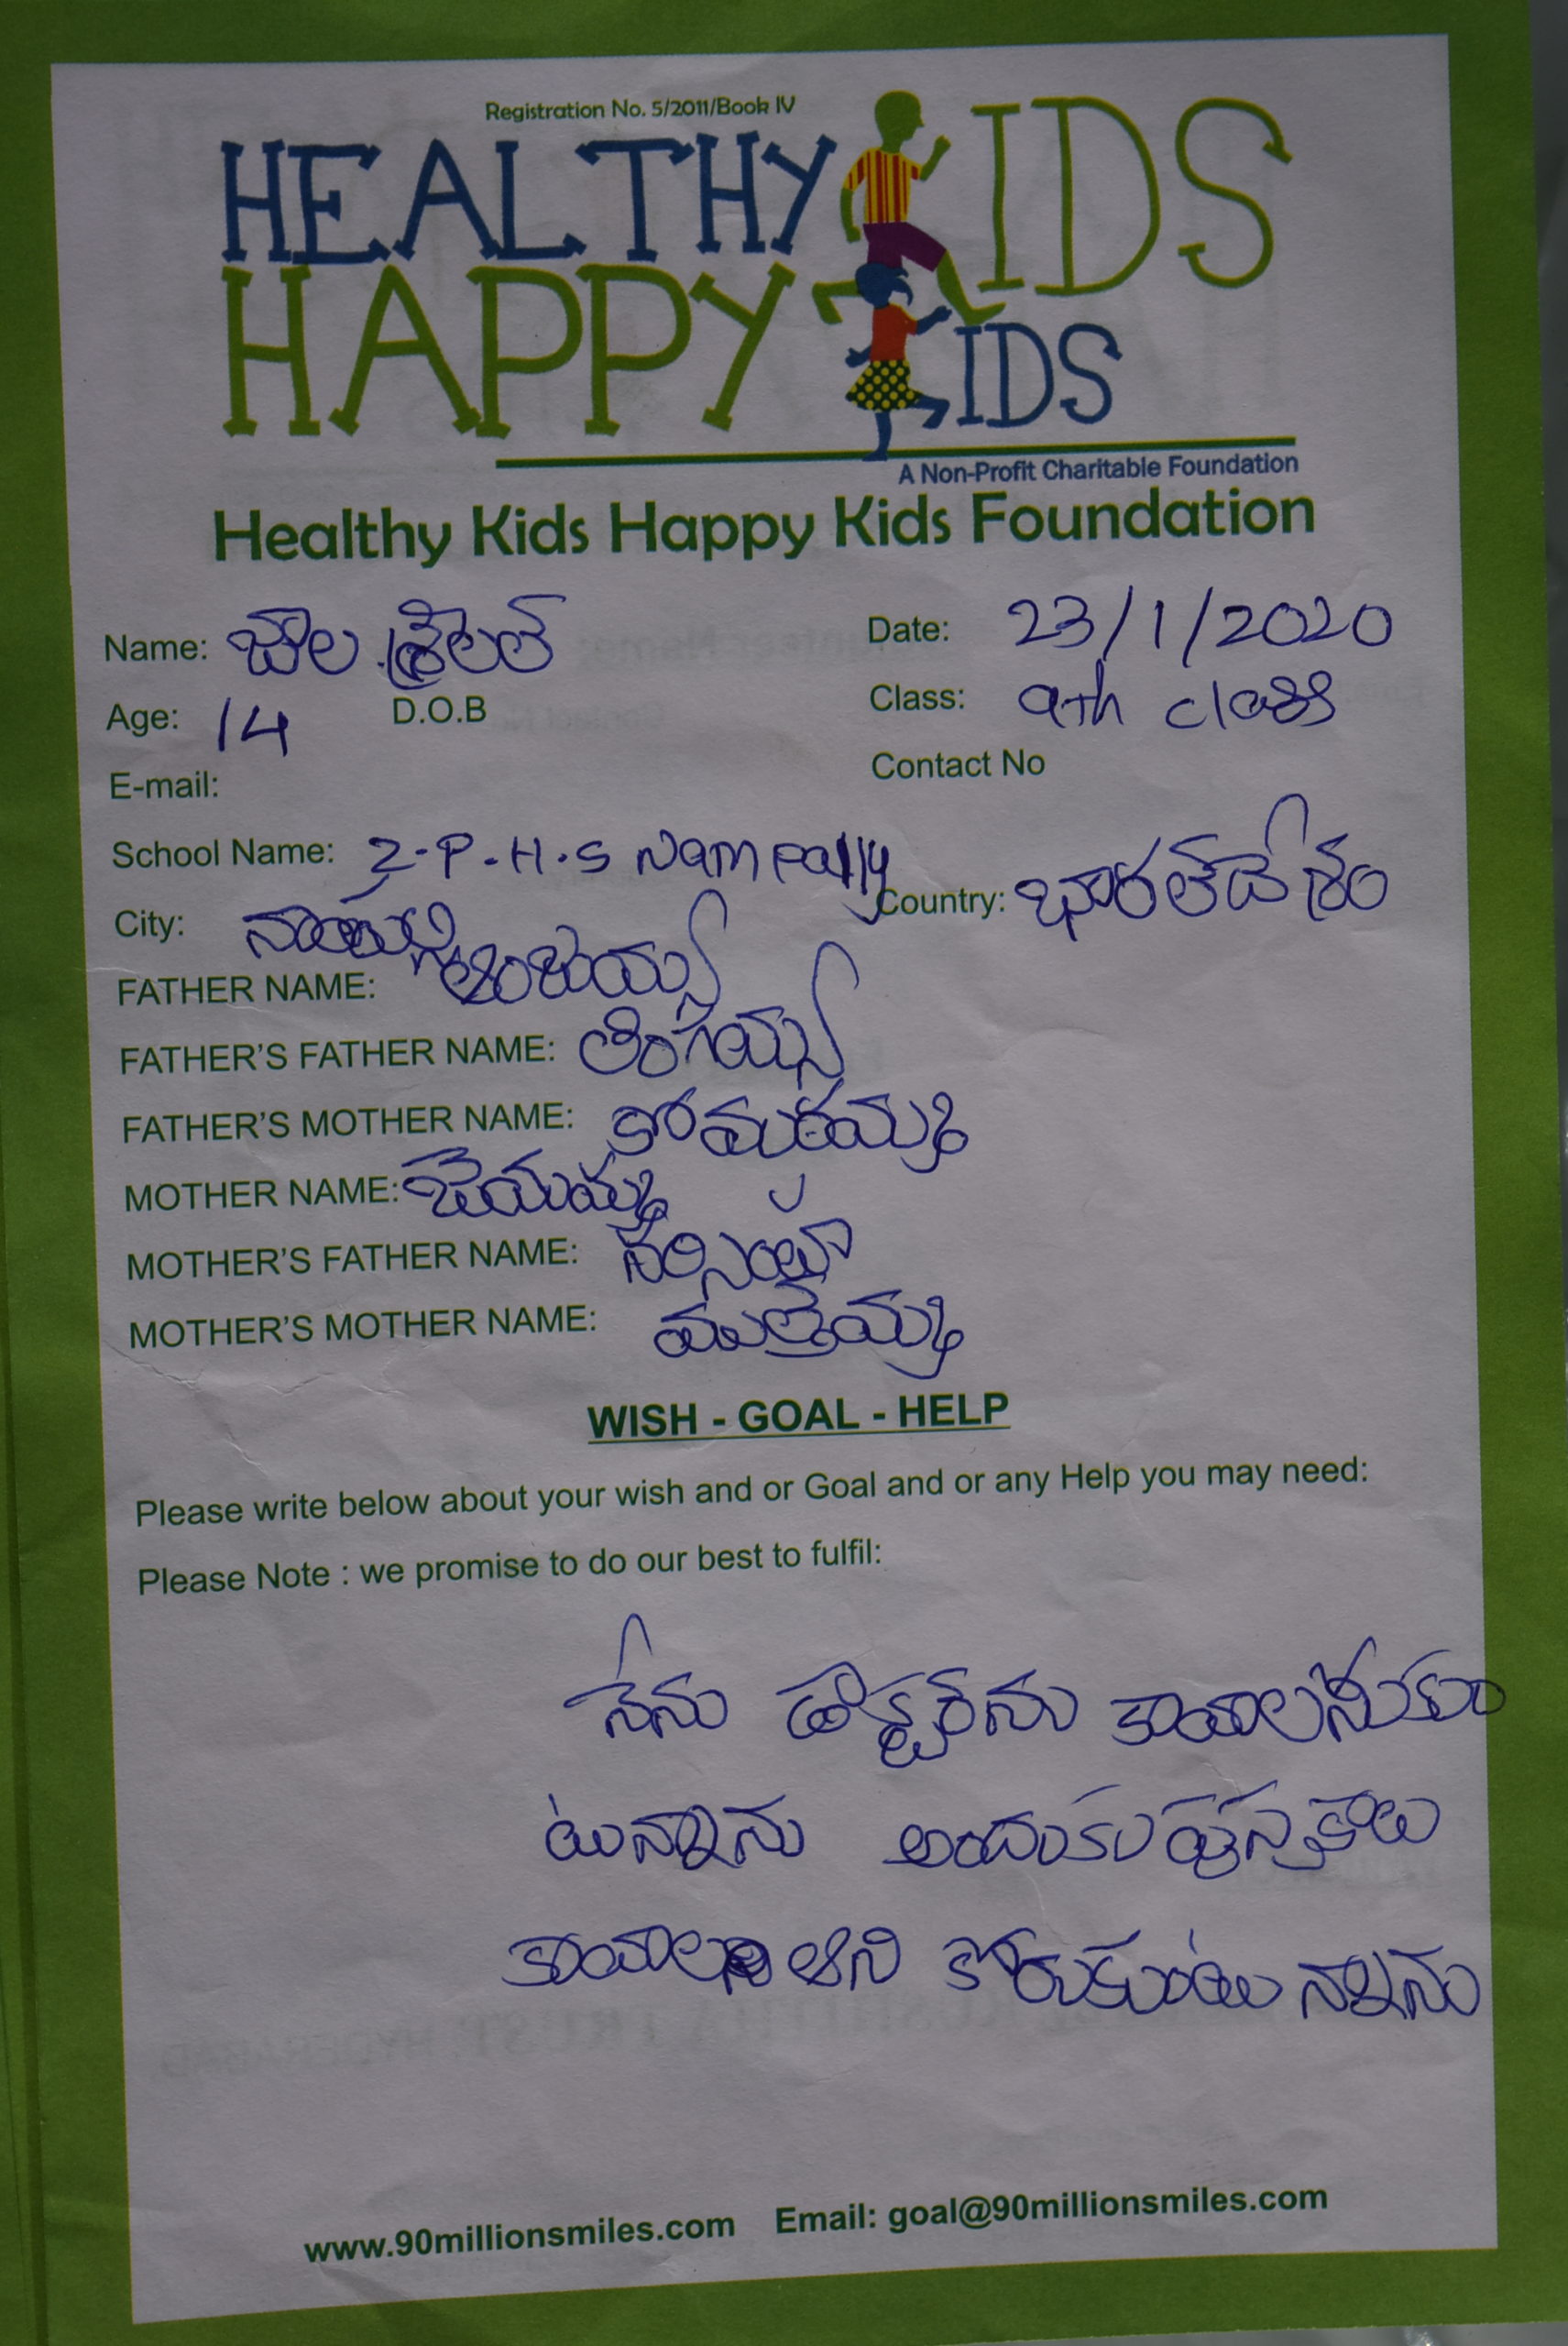 Registration No. 5/2011/Book IV
HEALTHY KIDS
HAPPY KIDS
A Non-Profit Charitable Foundation
Healthy Kids Happy Kids Foundation
Name: జాల శ్రీలత్ Date: 23/1/2020
Age: 14 D.O.B Class: 9th class
E-mail: Contact No
School Name: Z-P-H-S Nampally
City: Country: భారత్‌దేశం
FATHER NAME: అంజయ్య
FATHER'S FATHER NAME: లింగయ్య
FATHER'S MOTHER NAME: కోమరమ్మ
MOTHER NAME: జెయమ్మ
MOTHER'S FATHER NAME: నర్సింహ
MOTHER'S MOTHER NAME: ముత్తెమ్మ
WISH - GOAL - HELP
Please write below about your wish and or Goal and or any Help you may need:
Please Note : we promise to do our best to fulfil:
నేను డాక్టర్‌ను కావాలనీకుం
టున్నాను అందుకు పుస్తకాలు
కావాల అని కోరుకుంటు న్నాను
www.90millionsmiles.com Email: goal@90millionsmiles.com